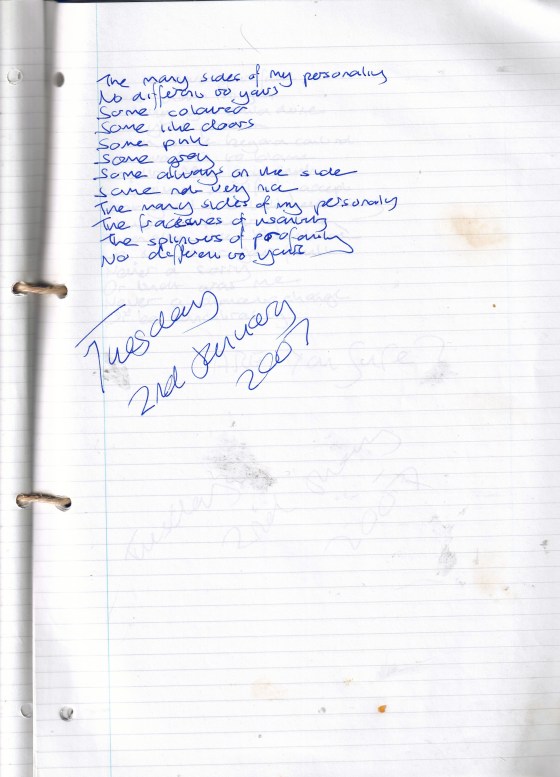 The many sides of my personality
No different to yours
Some coloured
Some like doors
Some pink
Some gray
Some always on the side
Some not very nice
The many sides of my personality
The fractures of insanity
The splinters of profanity
No different to yours
Tuesday
2nd January
2007